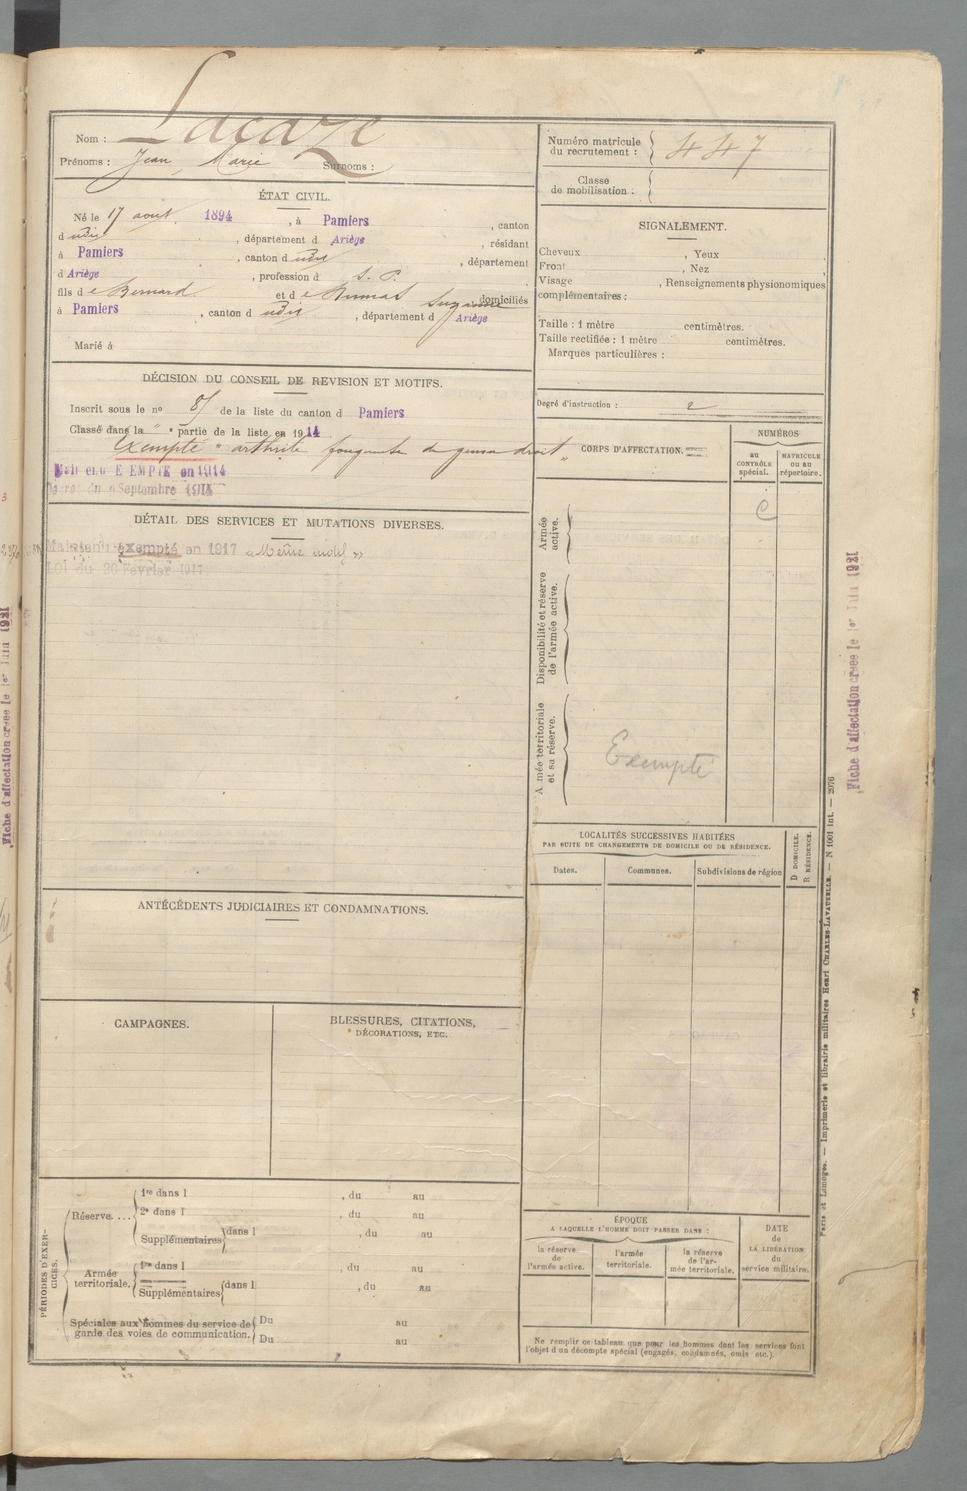 Nom : Lacaze
Prénoms : Jean Marie Surnoms :
Numéro matricule du recrutement : 447
Classe de mobilisation :
ÉTAT CIVIL.
Né le 17 aout 1894, à Pamiers, canton
d udit, département d Ariège, résidant
à Pamiers, canton d udit, département
d Ariège, profession d S. P.
fils de Bernard et de Suzanne domiciliés
à Pamiers, canton d udit, département d Ariège
Marié à
SIGNALEMENT.
Cheveux , Yeux
Front , Nez ,
Visage , Renseignements physionomiques
complémentaires :
Taille : 1 mètre centimètres.
Taille rectifiée : 1 mètre centimètres.
Marques particulières :
Degré d'instruction : 2
DÉCISION DU CONSEIL DE REVISION ET MOTIFS.
Inscrit sous le no de la liste du canton d Pamiers
Classé dans la " " partie de la liste en 1914
Exempté " arthrite du genou droit "
Maintenu EXEMPTÉ en 1914
Décret du 9 Septembre 1914
DÉTAIL DES SERVICES ET MUTATIONS DIVERSES.
Maintenu exempté en 1917 « Même motif »
LOI du 20 Fevrier 1917
CORPS D'AFFECTATION.
NUMÉROS
au CONTRÔLE spécial.
MATRICULE ou au répertoire.
Armée active.
C
Disponibilité et réserve de l'armée active.
Armée territoriale et sa réserve.
Exempté
LOCALITÉS SUCCESSIVES HABITÉES
PAR SUITE DE CHANGEMENTS DE DOMICILE OU DE RÉSIDENCE.
Dates.
Communes.
Subdivisions de région
D DOMICILE.
R RÉSIDENCE.
ANTÉCÉDENTS JUDICIAIRES ET CONDAMNATIONS.
CAMPAGNES.
BLESSURES, CITATIONS,
DÉCORATIONS, ETC.
PÉRIODES D'EXERCICES.
Réserve....
1re dans l , du au
2e dans l , du au
Supplémentaires dans l , du au
Armée territoriale.
1re dans l , du au
Supplémentaires dans l , du au
Spéciales aux hommes du service de garde des voies de communication.
Du au
Du au
ÉPOQUE
A LAQUELLE L'HOMME DOIT PASSER DANS :
la réserve de l'armée active.
l'armée territoriale.
la réserve de l'armée territoriale.
DATE de LA LIBÉRATION du service militaire.
Ne remplir ce tableau que pour les hommes dont les services font
l'objet d'un décompte spécial (engagés, condamnés, omis etc.).
Paris et Limoges. — Imprimerie et librairie militaires Henri CHARLES-LAVAUZELLE. — N 1001 int. — 2076
Fiche d'affectation créée le 1er Juin 1921
Fiche d'affectation créée le 1er Juin 1921